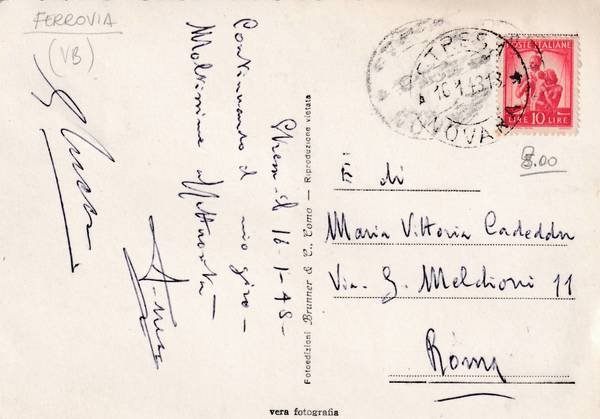 FERROVIA
(VB)
Stresa il 16-1-48-
Continuando il mio giro-
Moltissime affettuosità-
Fotoedizioni Brunner & C., Como — Riproduzione vietata
STRESA
NOVARA
POSTE ITALIANE
LIRE 10 LIRE
8.00
È di
Maria Vittoria Cadeddu
Via G. Meldioni 11
Roma
vera fotografia